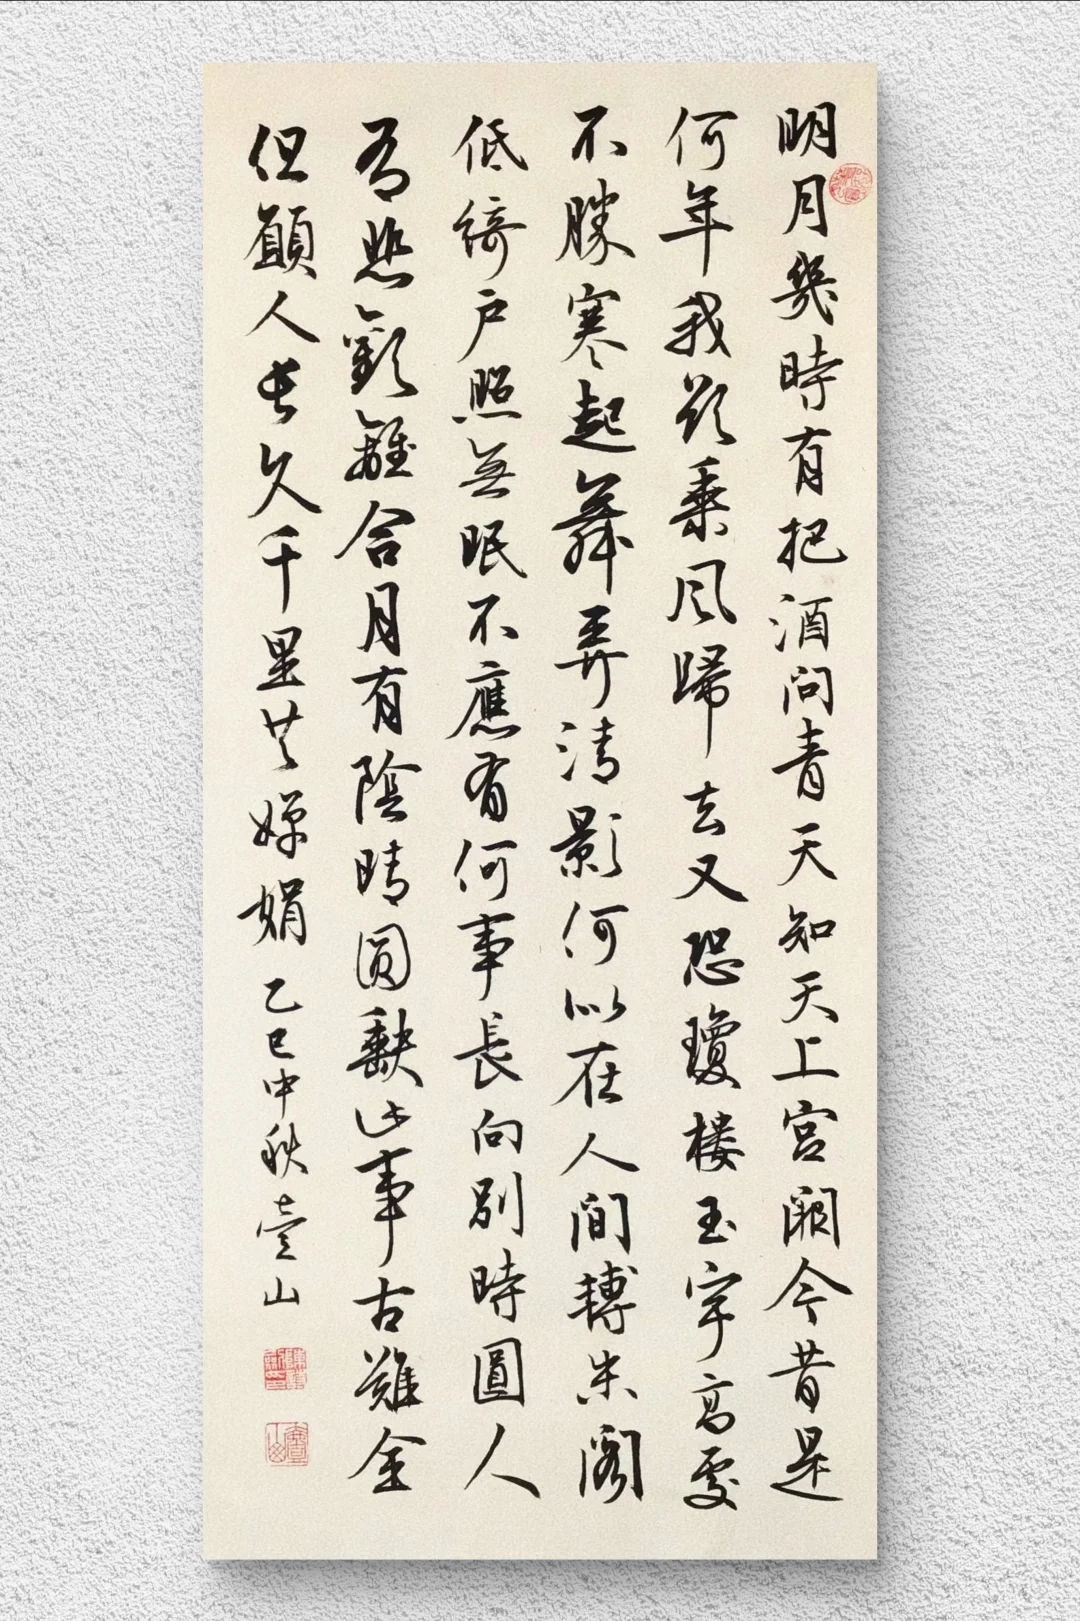 明月幾時有把酒問青天知天上宮闕今昔是
何年我欲乘風歸去又恐瓊樓玉宇高處
不勝寒起舞弄清影何以在人間轉朱閣
低綺戶照無眠不應有何事長向別時圓人
有悲歡離合月有陰晴圓缺此事古難全
但願人長久千里共嬋娟 乙巳中秋 壹山